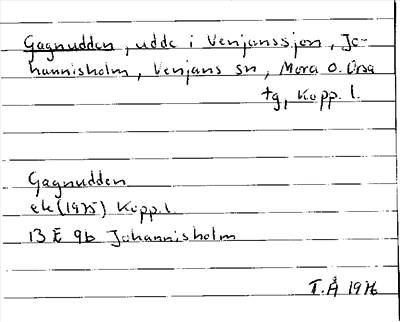 Gagnudden, udde i Venjanssjön, Jo-
hannisholm, Venjans sn, Mora o. Orsa
tg, Kopp. l.
Gagnudden
ek (1975) Kopp. l.
13 E 9b Johannisholm
T.Å 1976